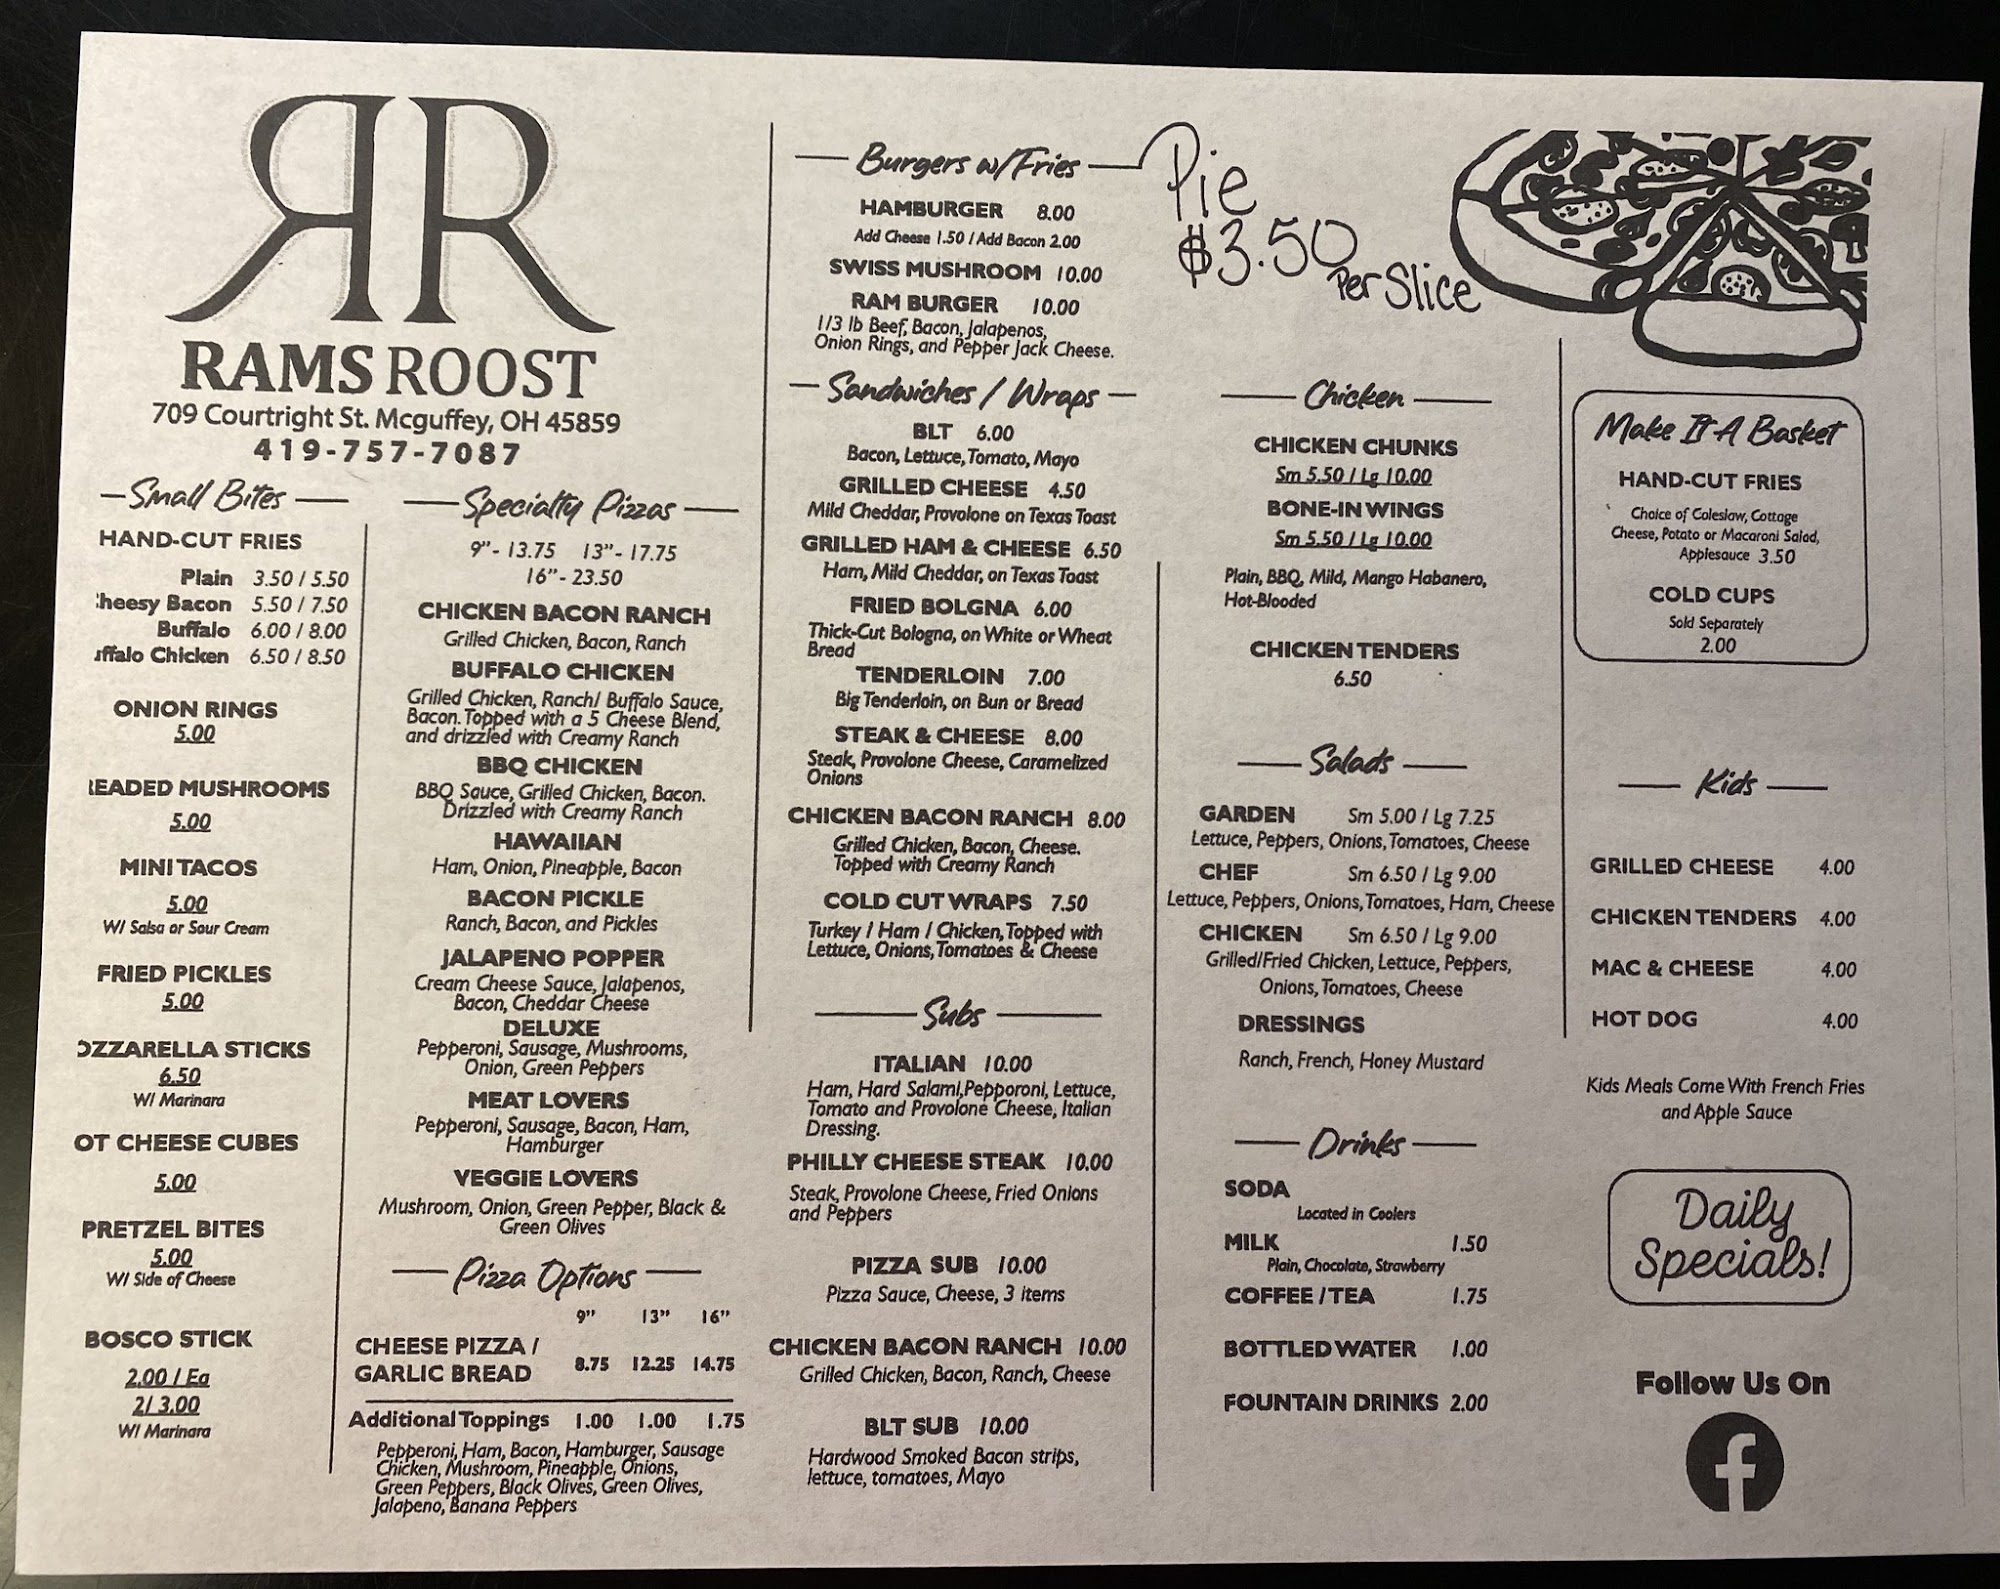 RR
RAMS ROOST
709 Courtright St. Mcguffey, OH 45859
419-757-7087
Small Bites
HAND-CUT FRIES
Plain 3.50 / 5.50
heesy Bacon 5.50 / 7.50
Buffalo 6.00 / 8.00
uffalo Chicken 6.50 / 8.50
ONION RINGS
5.00
READED MUSHROOMS
5.00
MINI TACOS
5.00
W/ Salsa or Sour Cream
FRIED PICKLES
5.00
OZZARELLA STICKS
6.50
W/ Marinara
OT CHEESE CUBES
5.00
PRETZEL BITES
5.00
W/ Side of Cheese
BOSCO STICK
2.00 / Ea
2/ 3.00
W/ Marinara
Specialty Pizzas
9"- 13.75 13"- 17.75
16"- 23.50
CHICKEN BACON RANCH
Grilled Chicken, Bacon, Ranch
BUFFALO CHICKEN
Grilled Chicken, Ranch/ Buffalo Sauce,
Bacon. Topped with a 5 Cheese Blend,
and drizzled with Creamy Ranch
BBQ CHICKEN
BBQ Sauce, Grilled Chicken, Bacon.
Drizzled with Creamy Ranch
HAWAIIAN
Ham, Onion, Pineapple, Bacon
BACON PICKLE
Ranch, Bacon, and Pickles
JALAPENO POPPER
Cream Cheese Sauce, Jalapenos,
Bacon, Cheddar Cheese
DELUXE
Pepperoni, Sausage, Mushrooms,
Onion, Green Peppers
MEAT LOVERS
Pepperoni, Sausage, Bacon, Ham,
Hamburger
VEGGIE LOVERS
Mushroom, Onion, Green Pepper, Black &
Green Olives
Pizza Options
9" 13" 16"
CHEESE PIZZA /
GARLIC BREAD 8.75 12.25 14.75
Additional Toppings 1.00 1.00 1.75
Pepperoni, Ham, Bacon, Hamburger, Sausage
Chicken, Mushroom, Pineapple, Onions,
Green Peppers, Black Olives, Green Olives,
Jalapeno, Banana Peppers
Burgers w/Fries
HAMBURGER 8.00
Add Cheese 1.50 / Add Bacon 2.00
SWISS MUSHROOM 10.00
RAM BURGER 10.00
1/3 lb Beef, Bacon, Jalapenos,
Onion Rings, and Pepper Jack Cheese.
Sandwiches / Wraps
BLT 6.00
Bacon, Lettuce, Tomato, Mayo
GRILLED CHEESE 4.50
Mild Cheddar, Provolone on Texas Toast
GRILLED HAM & CHEESE 6.50
Ham, Mild Cheddar, on Texas Toast
FRIED BOLGNA 6.00
Thick-Cut Bologna, on White or Wheat
Bread
TENDERLOIN 7.00
Big Tenderloin, on Bun or Bread
STEAK & CHEESE 8.00
Steak, Provolone Cheese, Caramelized
Onions
CHICKEN BACON RANCH 8.00
Grilled Chicken, Bacon, Cheese.
Topped with Creamy Ranch
COLD CUT WRAPS 7.50
Turkey / Ham / Chicken, Topped with
Lettuce, Onions, Tomatoes & Cheese
Subs
ITALIAN 10.00
Ham, Hard Salami, Pepporoni, Lettuce,
Tomato and Provolone Cheese, Italian
Dressing.
PHILLY CHEESE STEAK 10.00
Steak, Provolone Cheese, Fried Onions
and Peppers
PIZZA SUB 10.00
Pizza Sauce, Cheese, 3 items
CHICKEN BACON RANCH 10.00
Grilled Chicken, Bacon, Ranch, Cheese
BLT SUB 10.00
Hardwood Smoked Bacon strips,
lettuce, tomatoes, Mayo
Pie
$3.50
Per Slice
Chicken
CHICKEN CHUNKS
Sm 5.50 / Lg 10.00
BONE-IN WINGS
Sm 5.50 / Lg 10.00
Plain, BBQ, Mild, Mango Habanero,
Hot-Blooded
CHICKEN TENDERS
6.50
Salads
GARDEN Sm 5.00 / Lg 7.25
Lettuce, Peppers, Onions, Tomatoes, Cheese
CHEF Sm 6.50 / Lg 9.00
Lettuce, Peppers, Onions, Tomatoes, Ham, Cheese
CHICKEN Sm 6.50 / Lg 9.00
Grilled/Fried Chicken, Lettuce, Peppers,
Onions, Tomatoes, Cheese
DRESSINGS
Ranch, French, Honey Mustard
Drinks
SODA
Located in Coolers
MILK 1.50
Plain, Chocolate, Strawberry
COFFEE / TEA 1.75
BOTTLED WATER 1.00
FOUNTAIN DRINKS 2.00
Make It A Basket
HAND-CUT FRIES
Choice of Coleslaw, Cottage
Cheese, Potato or Macaroni Salad,
Applesauce 3.50
COLD CUPS
Sold Separately
2.00
Kids
GRILLED CHEESE 4.00
CHICKEN TENDERS 4.00
MAC & CHEESE 4.00
HOT DOG 4.00
Kids Meals Come With French Fries
and Apple Sauce
Daily
Specials!
Follow Us On
f